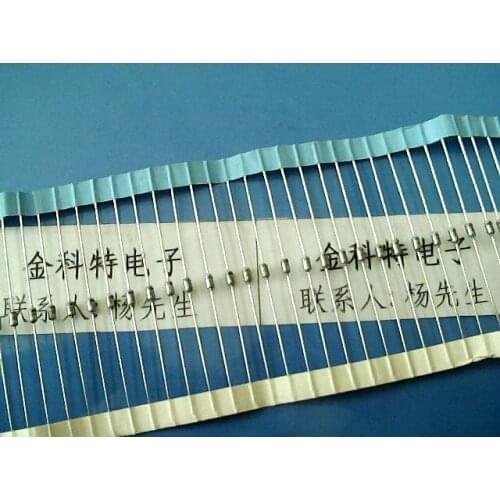 金科特电子
联系人:杨先生
金科特电子
联系人:杨先生